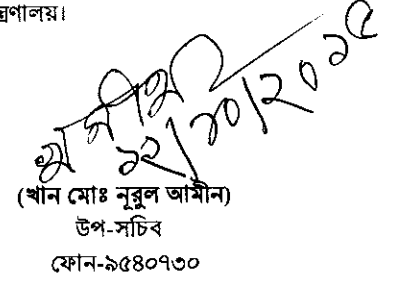 ন্ত্রণালয়।
১২/১০/২০১৫
(খান মোঃ নূরুল আমীন)
উপ-সচিব
ফোন-৯৫৪০৭৩০